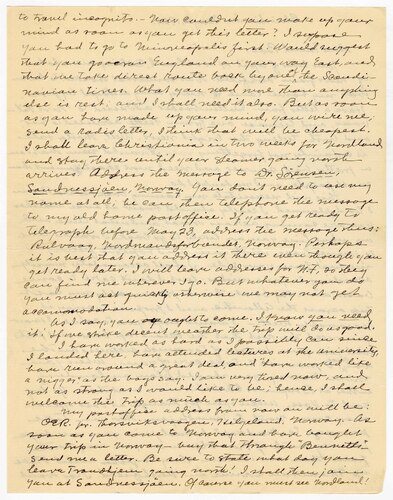 to travel incognito. - Now couldn't you make up your
mind as soon as you get this letter? I suppose
you had to go to Minneapolis first. Would suggest
that you go over England on your way East and
that we take direct route back beyond the Scandi-
navian lines. What you need more than anything
else is rest; and I shall need it also. But as soon
as you have made up your mind, you wire me;
send a radio letter, I think that will be cheapest.
I shall leave Christiania in two weeks for Nordland
and stay there until your steamer going north
arrives. Address the message to Dr. Sörensen,
Sandnessjöen, Norway. You don't need to use my
name at all; he can then telephone the message
to my old home post office. If you get ready to
telegraph before May 23, address the message thus:
Rølvaag, Nordmandsforbundet, Norway. Perhaps
it is best that you address it there even though you
get ready later. I will leave addresses for N.F. so they
can find me wherever I go. But whatever you do
you must act quickly otherwise we may not get
accomodation.
As I say, you ought to come. I know you need
it. If we strike decent weather the trip will do us good.
I have worked as hard as I possibly can since
I landed here, have attended lectures at the university,
have run around a great deal and "have worked like
a nigger" as the boys say. I am very tired now, and
not as strong as I would like to be; hence, I shall
welcome the trip as much as you.
My post office address from now on will be:
O.E.R. pr. Thorsviksvaagen, Helgeland, Norway. As
soon as you come to Norway and have bought
your trip in Norway - buy that thorough "Bennetts"
send me a letter. Be sure to state what day you
leave Trondhjem going north! I shall then join
you at Sandnessjöen. Of course you must see Nordland!